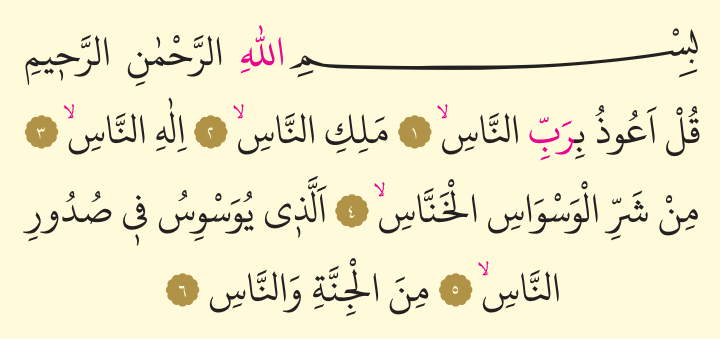 بِسْمِ اللّٰهِ الرَّحْمٰنِ الرَّح۪يمِ
قُلْ اَعُوذُ بِرَبِّ النَّاسِۙ ﴿١﴾ مَلِكِ النَّاسِۙ ﴿٢﴾ اِلٰهِ النَّاسِۙ ﴿٣﴾
مِنْ شَرِّ الْوَسْوَاسِ الْخَنَّاسِۙ ﴿٤﴾ اَلَّذ۪ى يُوَسْوِسُ ف۪ى صُدُورِ
النَّاسِۙ ﴿٥﴾ مِنَ الْجِنَّةِ وَالنَّاسِ ﴿٦﴾